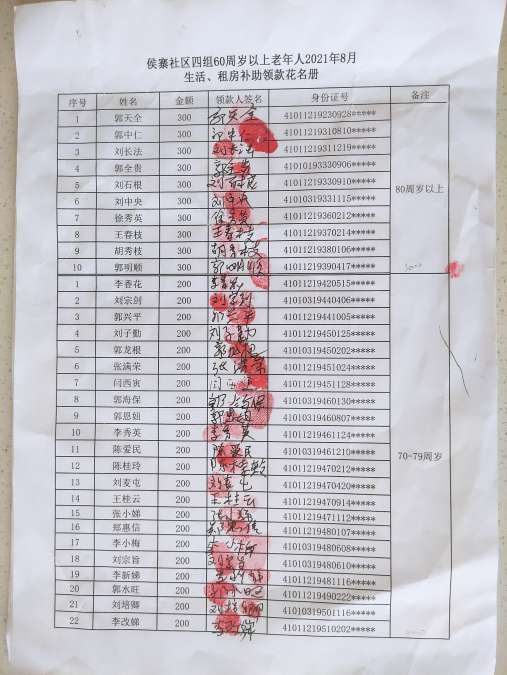 侯寨社区四组60周岁以上老年人2021年8月
生活、租房补助领款花名册
序号 姓名 金额 领款人签名 身份证号 备注
1 郭天全 300 郭天全 41011219230928*****
2 郭中仁 300 郭中仁 41011219310810*****
3 刘长法 300 刘长法 41011219311219*****
4 郭全贵 300 郭全贵 41010193330906*****
5 刘石根 300 刘石根 41011219330910*****
80周岁以上
6 刘中央 300 刘中央 41010319331115*****
7 徐秀英 300 徐秀英 41011219360212*****
8 王春枝 300 王春枝 41011219370214*****
9 胡秀枝 300 胡秀枝 41011219380106*****
10 郭明顺 300 郭明顺 41011219390417*****
1 李香花 200 李香花 41011219420515*****
2 刘宗剑 200 刘宗剑 41010319440406*****
3 郭兴平 200 郭兴平 41011219441005*****
4 刘子勤 200 刘子勤 41011219450125*****
5 郭龙根 200 郭龙根 41010319450202*****
6 张满荣 200 张满荣 41011219451024*****
7 闫西寅 200 41011219451128*****
8 郭海保 200 郭海保 41010319460130*****
9 郭恩妞 200 郭恩妞 41010319460807*****
10 李秀英 200 李秀英 41011219461124*****
11 陈爱民 200 陈爱民 41010319461210*****
70-79周岁
12 陈桂玲 200 41011219470212*****
13 刘麦屯 200 刘麦屯 41011219470420*****
14 王桂云 200 王桂云 41011219470914*****
15 张小娣 200 41011219471112*****
16 郑惠信 200 41011219480107*****
17 李小梅 200 李小梅 41010319480608*****
18 刘宗旨 200 41010319480610*****
19 李新娣 200 41011219481116*****
20 郭水旺 200 郭水旺 41011219490222*****
21 刘培卿 200 刘培卿 41010319501116*****
22 李改娣 200 李改娣 41011219510202*****